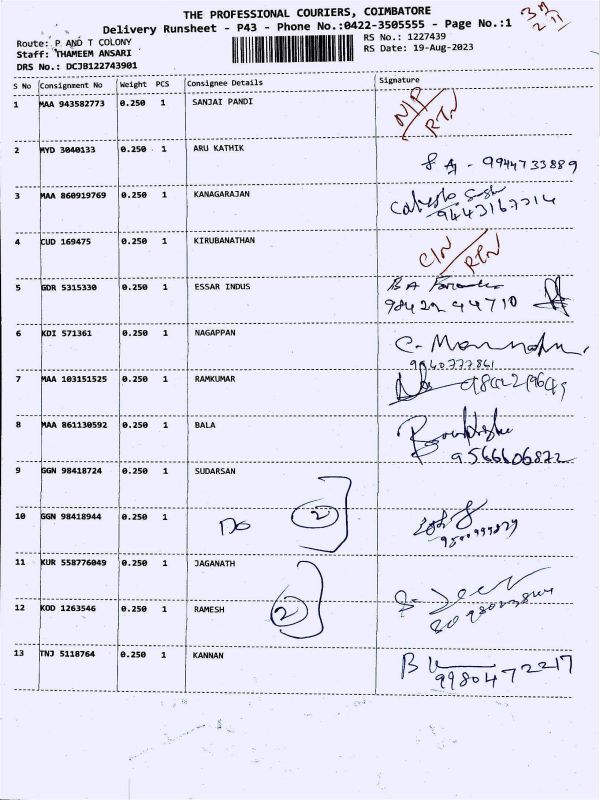 THE PROFESSIONAL COURIERS, COIMBATORE
Delivery Runsheet - P43 - Phone No.:0422-3505555 - Page No.:1
Route: P AND T COLONY
RS No.: 1227439
Staff: THAMEEM ANSARI
RS Date: 19-Aug-2023
DRS No.: DCJB122743901
S No Consignment No Weight PCS Consignee Details Signature
1 MAA 943582773 0.250 1 SANJAI PANDI N/P
RTN
2 MYD 3040133 0.250 1 ARU KATHIK
9944733889
3 MAA 860919769 0.250 1 KANAGARAJAN
4 CUD 169475 0.250 1 KIRUBANATHAN
RTN
5 GDR 5315330 0.250 1 ESSAR INDUS
98422 44710
6 KDI 571361 0.250 1 NAGAPPAN
7 MAA 103151525 0.250 1 RAMKUMAR
8 MAA 861130592 0.250 1 BALA
9566606872
9 GGN 98418724 0.250 1 SUDARSAN
10 GGN 98418944 0.250 1 Do 2
11 KUR 558776049 0.250 1 JAGANATH
12 KOD 1263546 0.250 1 RAMESH 2
13 TNJ 5118764 0.250 1 KANNAN
9980472217